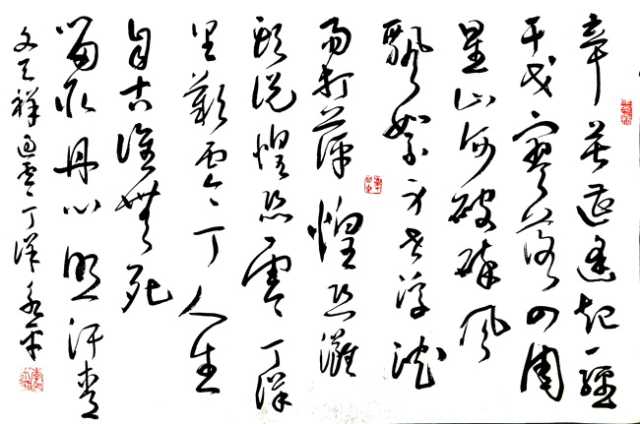 辛苦遭逢起一經
干戈寥落四周
星山河破碎風
飄絮身世浮沈
雨打萍惶恐灘
頭說惶恐零丁洋
里歎零丁人生
自古誰無死
留取丹心照汗青
文天祥過零丁洋